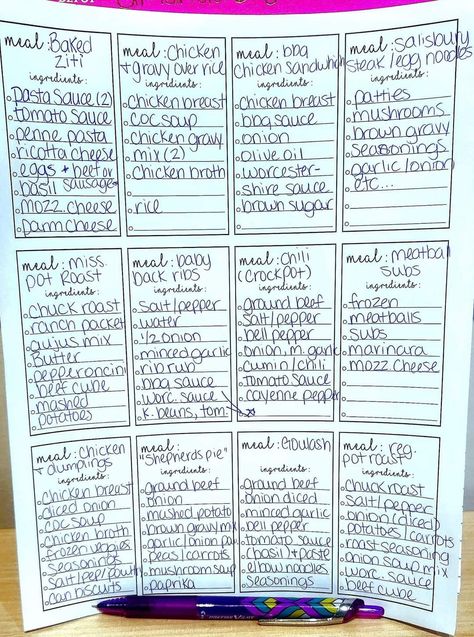 meal: Baked
ziti
ingredients:
pasta sauce (2)
tomato sauce
penne pasta
ricotta cheese
eggs + beef or
basil sausage
mozz. cheese
parm cheese
meal: chicken
+ gravy over rice
ingredients:
chicken breast
coc soup
chicken gravy
mix (2)
chicken broth
rice
meal: bbq
chicken sandwich
ingredients:
chicken breast
bbq sauce
onion
olive oil
worcester-
shire sauce
brown sugar
meal: Salisbury
steak/egg noodles
ingredients:
patties
mushrooms
brown gravy
seasonings
garlic/onion
etc...
meal: miss.
pot roast
ingredients:
chuck roast
ranch packet
aujus mix
Butter
pepperoncini
beef cube
mashed
potatoes
meal: baby
back ribs
ingredients:
salt/pepper
water
1/2 onion
minced garlic
rib rub
bbq sauce
worc. sauce
k. beans, tom.
meal: chili
(crockpot)
ingredients:
ground beef
salt/pepper
bell pepper
onion, m. garlic
cumin/chili
tomato sauce
cayenne pepper
meal: meatball
subs
ingredients:
frozen
meatballs
subs
marinara
mozz cheese
meal: chicken
+ dumplings
ingredients:
chicken breast
diced onion
coc soup
chicken broth
frozen veggies
seasonings
salt/pep/
can biscuits
meal:
"shepherds pie"
ingredients:
ground beef
onion
mushed potato
brown gravy mix
garlic/onion
peas/carrots
mushroom soup
paprika
meal: Goulash
ingredients:
ground beef
onion diced
minced garlic
bell pepper
tomato sauce
(basil) + paste
elbow noodles
seasonings
meal: reg.
pot roast
ingredients:
chuck roast
salt/pepper
onion (diced)
potatoes/carrots
roast seasoning
onion soup mix
worc. sauce
beef cube